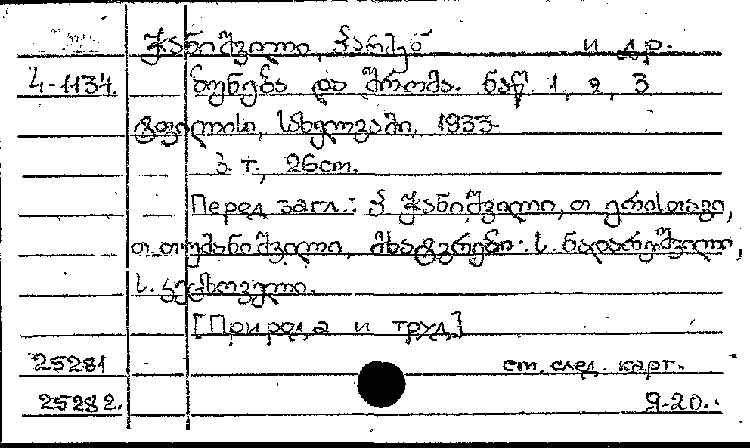 ჭანიშვილი, პარმენ и др.
4-1134. ბუნება და შრომა. ნაწ. 1, 2, 3
ტფილისი, სახელგამი, 1933
3 т., 26cm.
Перед загл.: პ ჭანიშვილი, თ ერისთავი,
თ. თუმანიშვილი, მხატვრები: ს. ნადარეიშვილი,
ს.
[Природа и труд]
25281 ст. след. карт.
25282. 9-20.